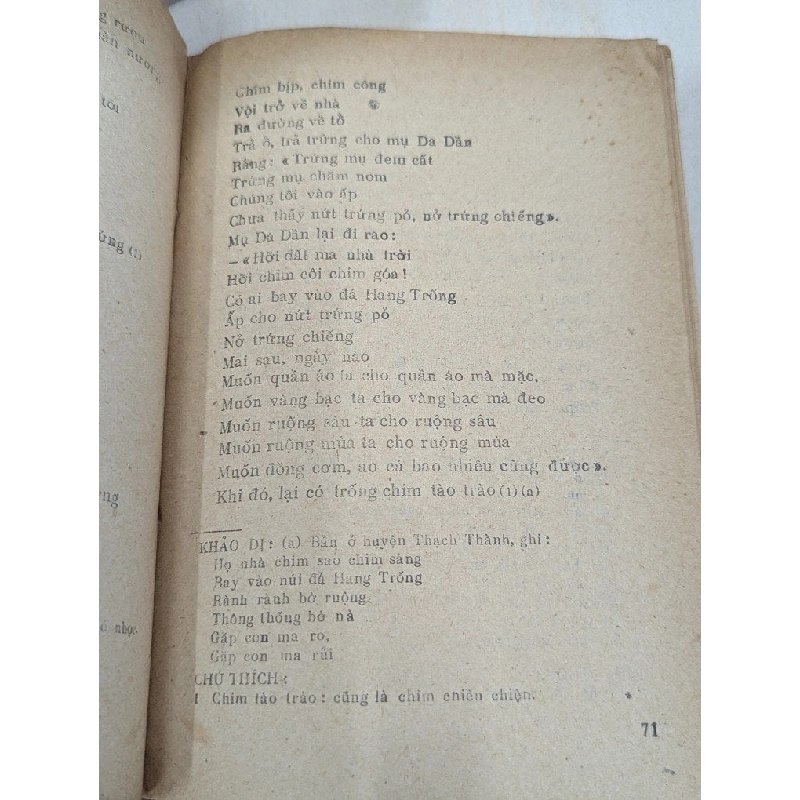 g rượu
tôi
ứng (1)
ng
nhọc
Chim bịp, chim công
Vội trở về nhà
Ra đường về tồ
Trả ổ, trả trứng cho mụ Dạ Dần
Rằng: « Trứng mụ đem cất
Trứng mụ chăm nom
Chúng tôi vào ấp
Chưa thấy nứt trứng pỏ, nở trứng chiếng ».
Mụ Dạ Dần lại đi rao:
— « Hỡi đất ma nhà trời
Hỡi chim côi chim góa!
Có ai bay vào đá Hang Trống
Ấp cho nứt trứng pỏ
Nở trứng chiếng
Mai sau, ngày nào
Muốn quần áo ta cho quần áo mà mặc,
Muốn vàng bạc ta cho vàng bạc mà đeo
Muốn ruộng sâu ta cho ruộng sâu
Muốn ruộng mùa ta cho ruộng mùa
Muốn đồng cơm, ao cá bao nhiêu cũng được ».
Khi đó, lại có trống chim tào trào (1) (a)
KHẢO DỊ: (a) Bản ở huyện Thạch Thành, ghi:
Họ nhà chim sáo chim sàng
Bay vào núi đá Hang Trống
Rành rành bờ ruộng
Thông thống bờ nà
Gặp con ma ro,
Gặp con ma rủi
CHÚ THÍCH:
1 Chim tào trào: cũng là chim chiền chiện.
71